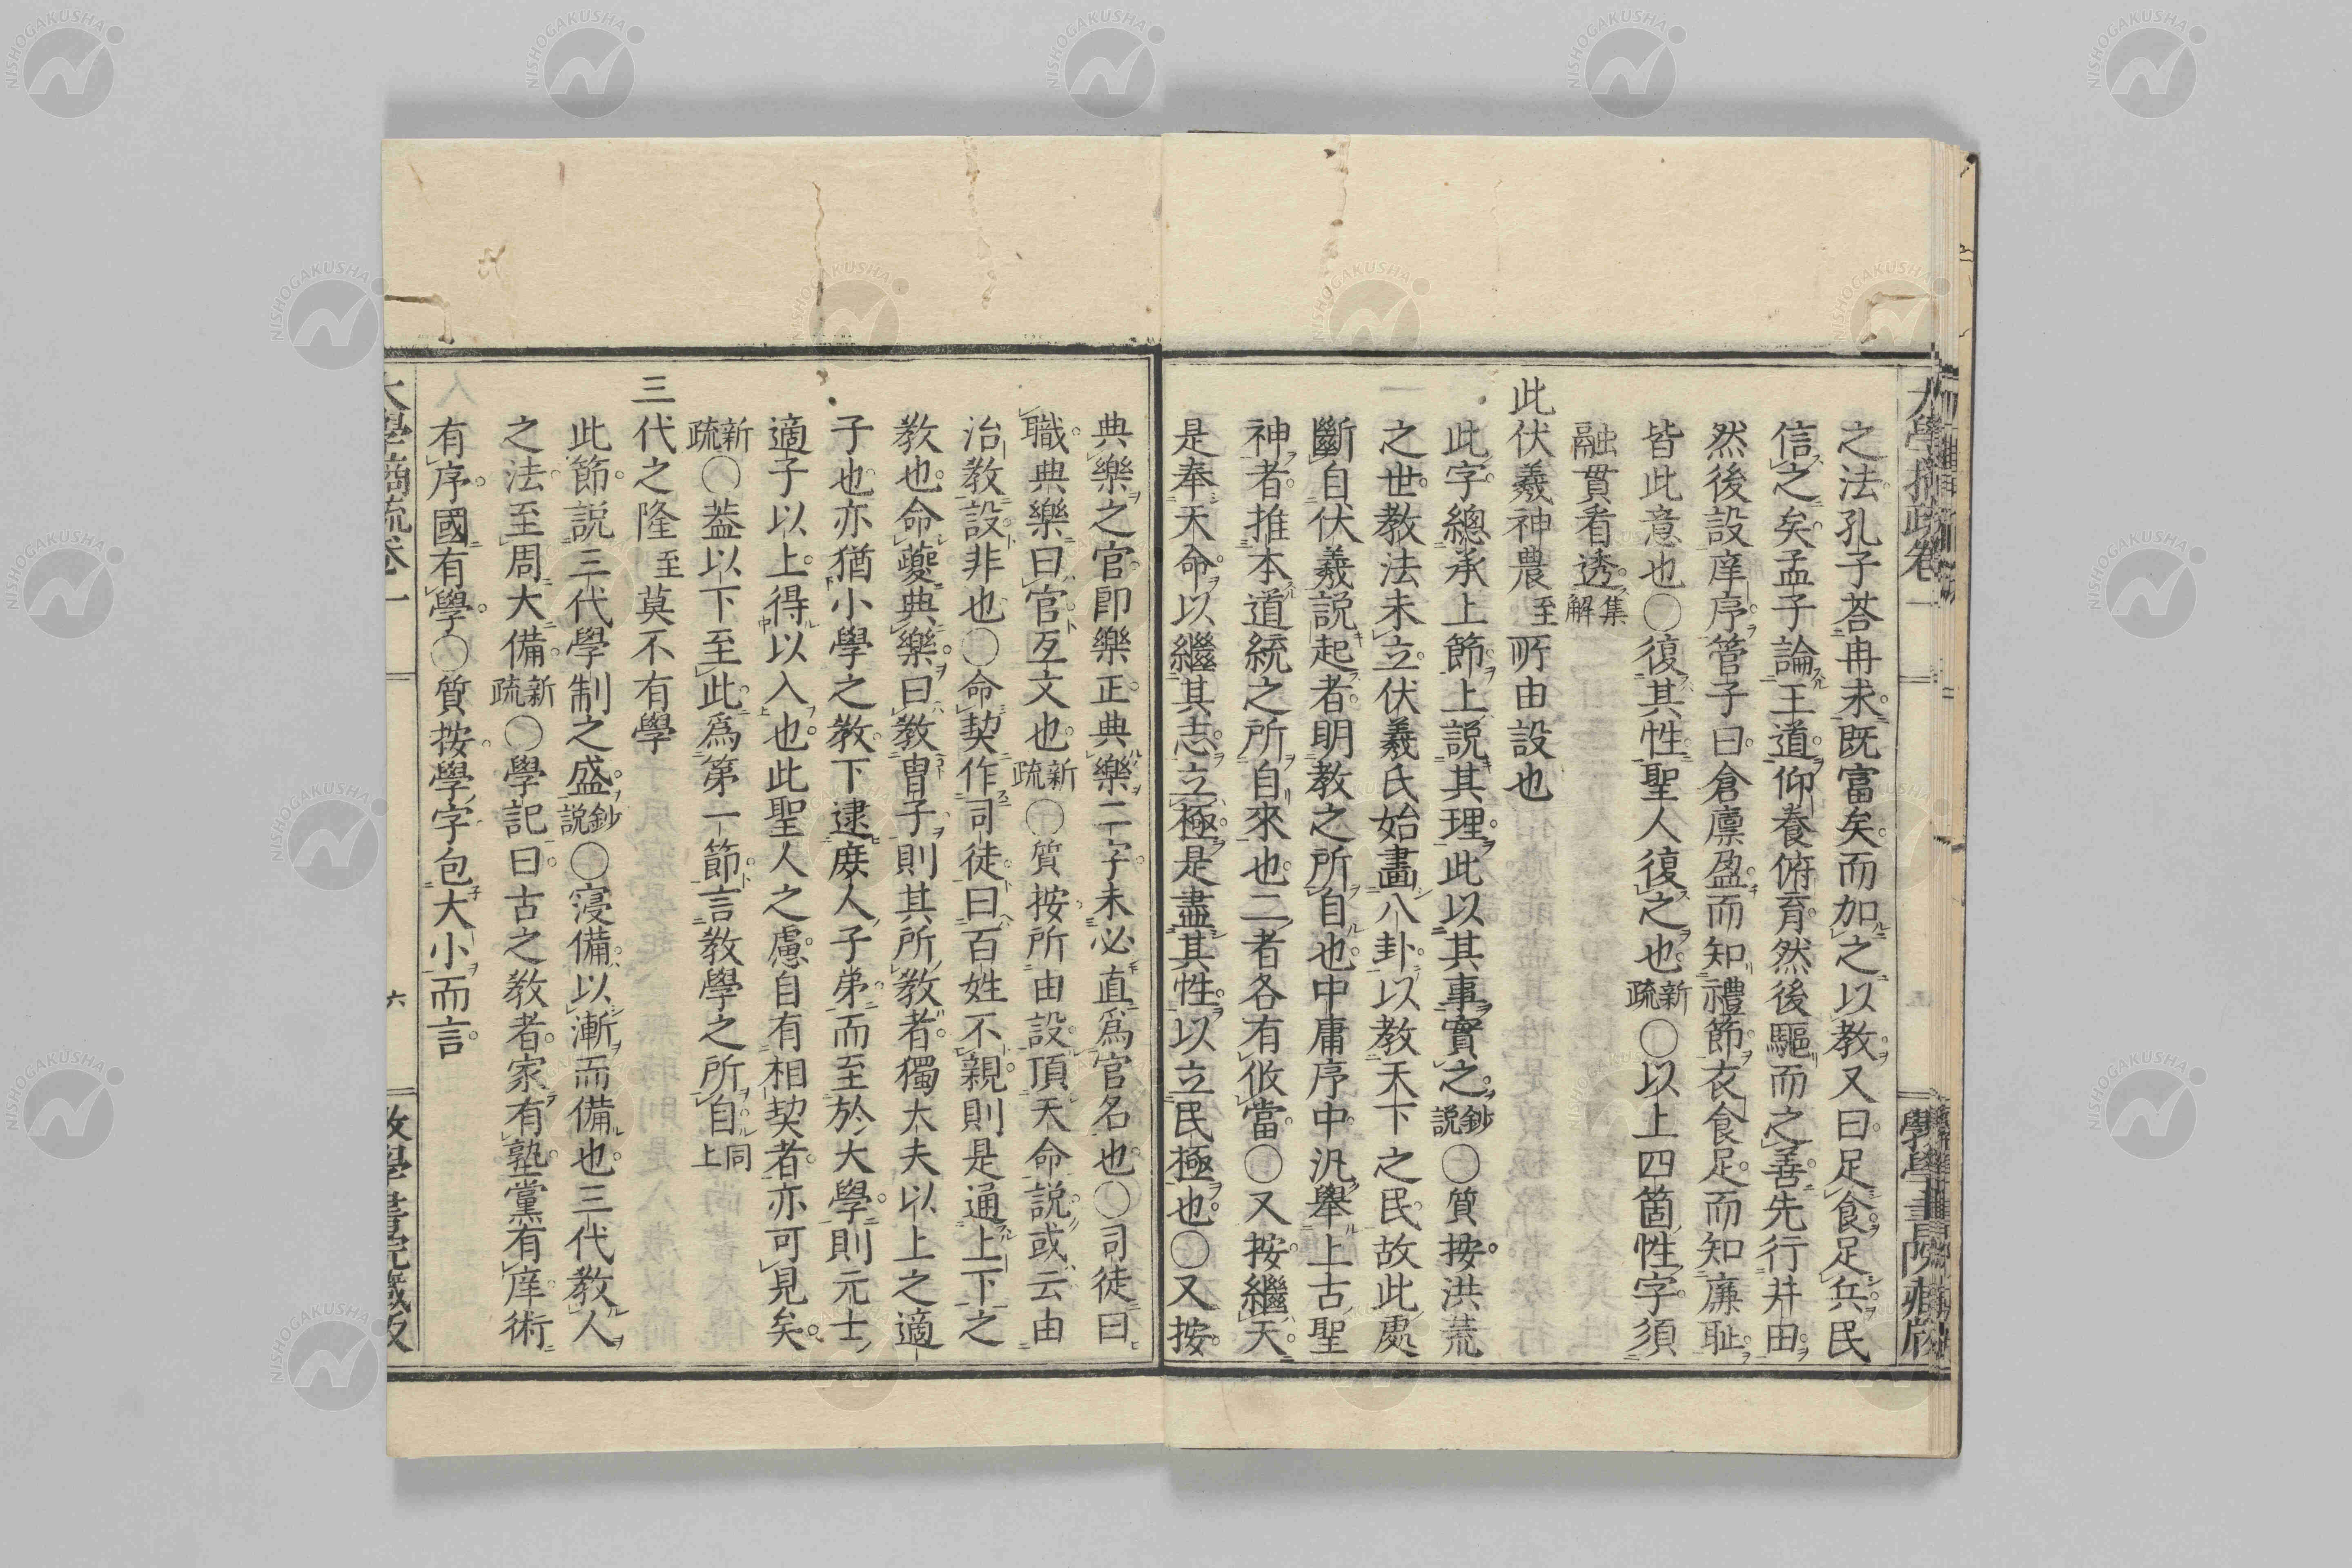 之法孔子荅冉求既富矣而加之以教又曰足食足兵民
信之矣孟子論王道仰養俯育然後驅而之善先行井田
然後設庠序管子曰倉廩盈而知禮節衣食足而知廉耻
皆此意也〇復其性聖人復之也新疏〇以上四箇性字須
融貫看透集解
此伏羲神農至所由設也
此字總承上節上説其理此以其事實之鈔説〇質按洪荒
之世教法未立伏羲氏始畫八卦以教天下之民故此處
斷自伏羲説起者明教之所自也中庸序中汎舉上古聖
神者推本道統之所自來也二者各有攸當〇又按繼天
是奉天命以繼其志立極是盡其性以立民極也〇又按
典樂之官即樂正典樂二字未必直爲官名也〇司徒曰
職典樂曰官互文也新疏〇質按所由設頂天命説或云由
治教設非也〇命契作司徒曰百姓不親則是通上下之
教也命夔典樂曰教胄子則其所教者獨大夫以上之適
子也亦猶小學之教下逮庶人子弟而至於大學則元士
適子以上得以入也此聖人之慮自有相契者亦可見矣
新疏〇葢以下至此爲第一節言教學之所自同上
三代之隆至莫不有學
此節説三代學制之盛鈔説〇寖備以漸而備也三代教人
之法至周大備新疏〇學記曰古之教者家有塾黨有庠術
有序國有學〇質按學字包大小而言
大學摘疏卷一
六
教學書院藏版